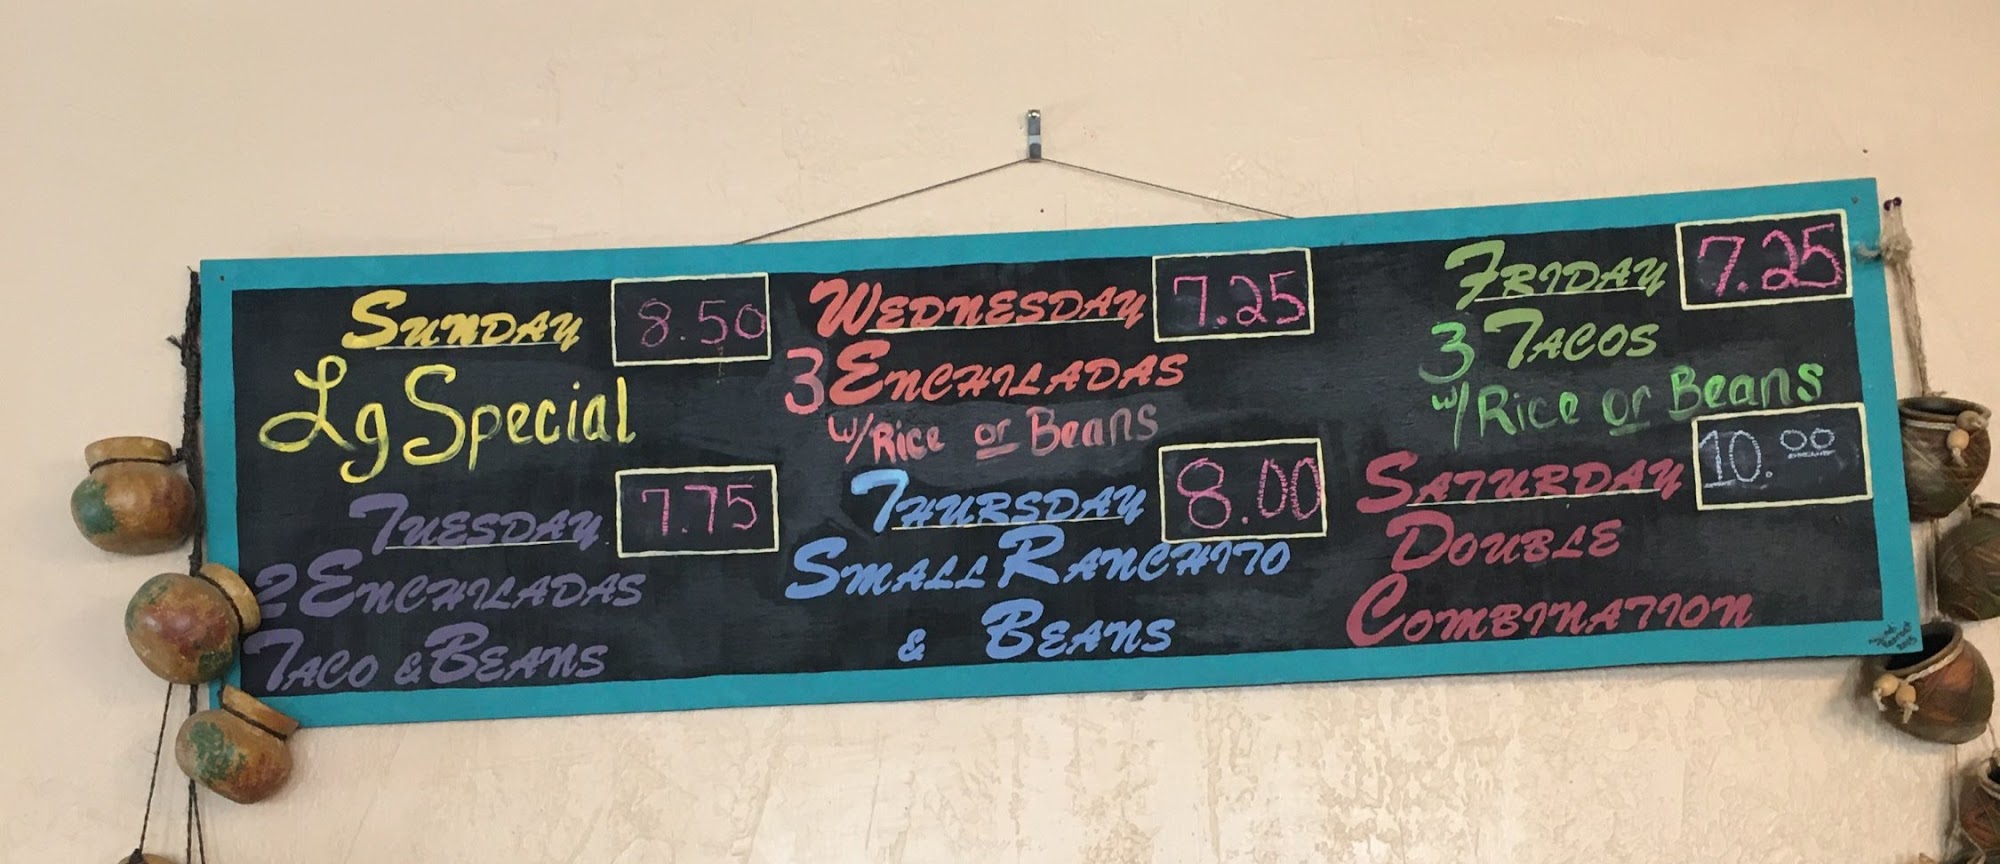 Sunday 8.50
Lg Special
Tuesday 7.75
2 Enchiladas
Taco & Beans
Wednesday 7.25
3 Enchiladas
w/Rice or Beans
Thursday 8.00
Small Ranchito
& Beans
Friday 7.25
3 Tacos
w/Rice or Beans
Saturday 10.00
Double
Combination